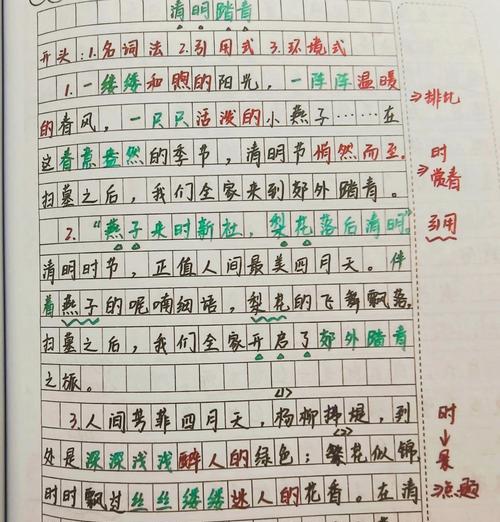 清明踏青
开头:1.名词法 2.引用式 3.环境式
1.一缕缕和煦的阳光,一阵阵温暖
的春风,一只只活泼的小燕子……在
→排比
这春意盎然的季节,清明节悄然而至。
时
扫墓之后,我们全家来到郊外踏青。
→赏春
2.“燕子来时新社,梨花落后清明”
引用
清明时节,正值人间最美四月天。伴
着燕子的呢喃细语,梨花的飞舞飘落,
扫墓之后,我们全家开启了郊外踏青
之旅。
3.人间芳菲四月天,杨柳拂堤,到
<1>
时
处是深深浅浅醉人的绿色;繁花似锦
<2>
↓
景
时时飘过丝丝缕缕迷人的花香。在清
点题